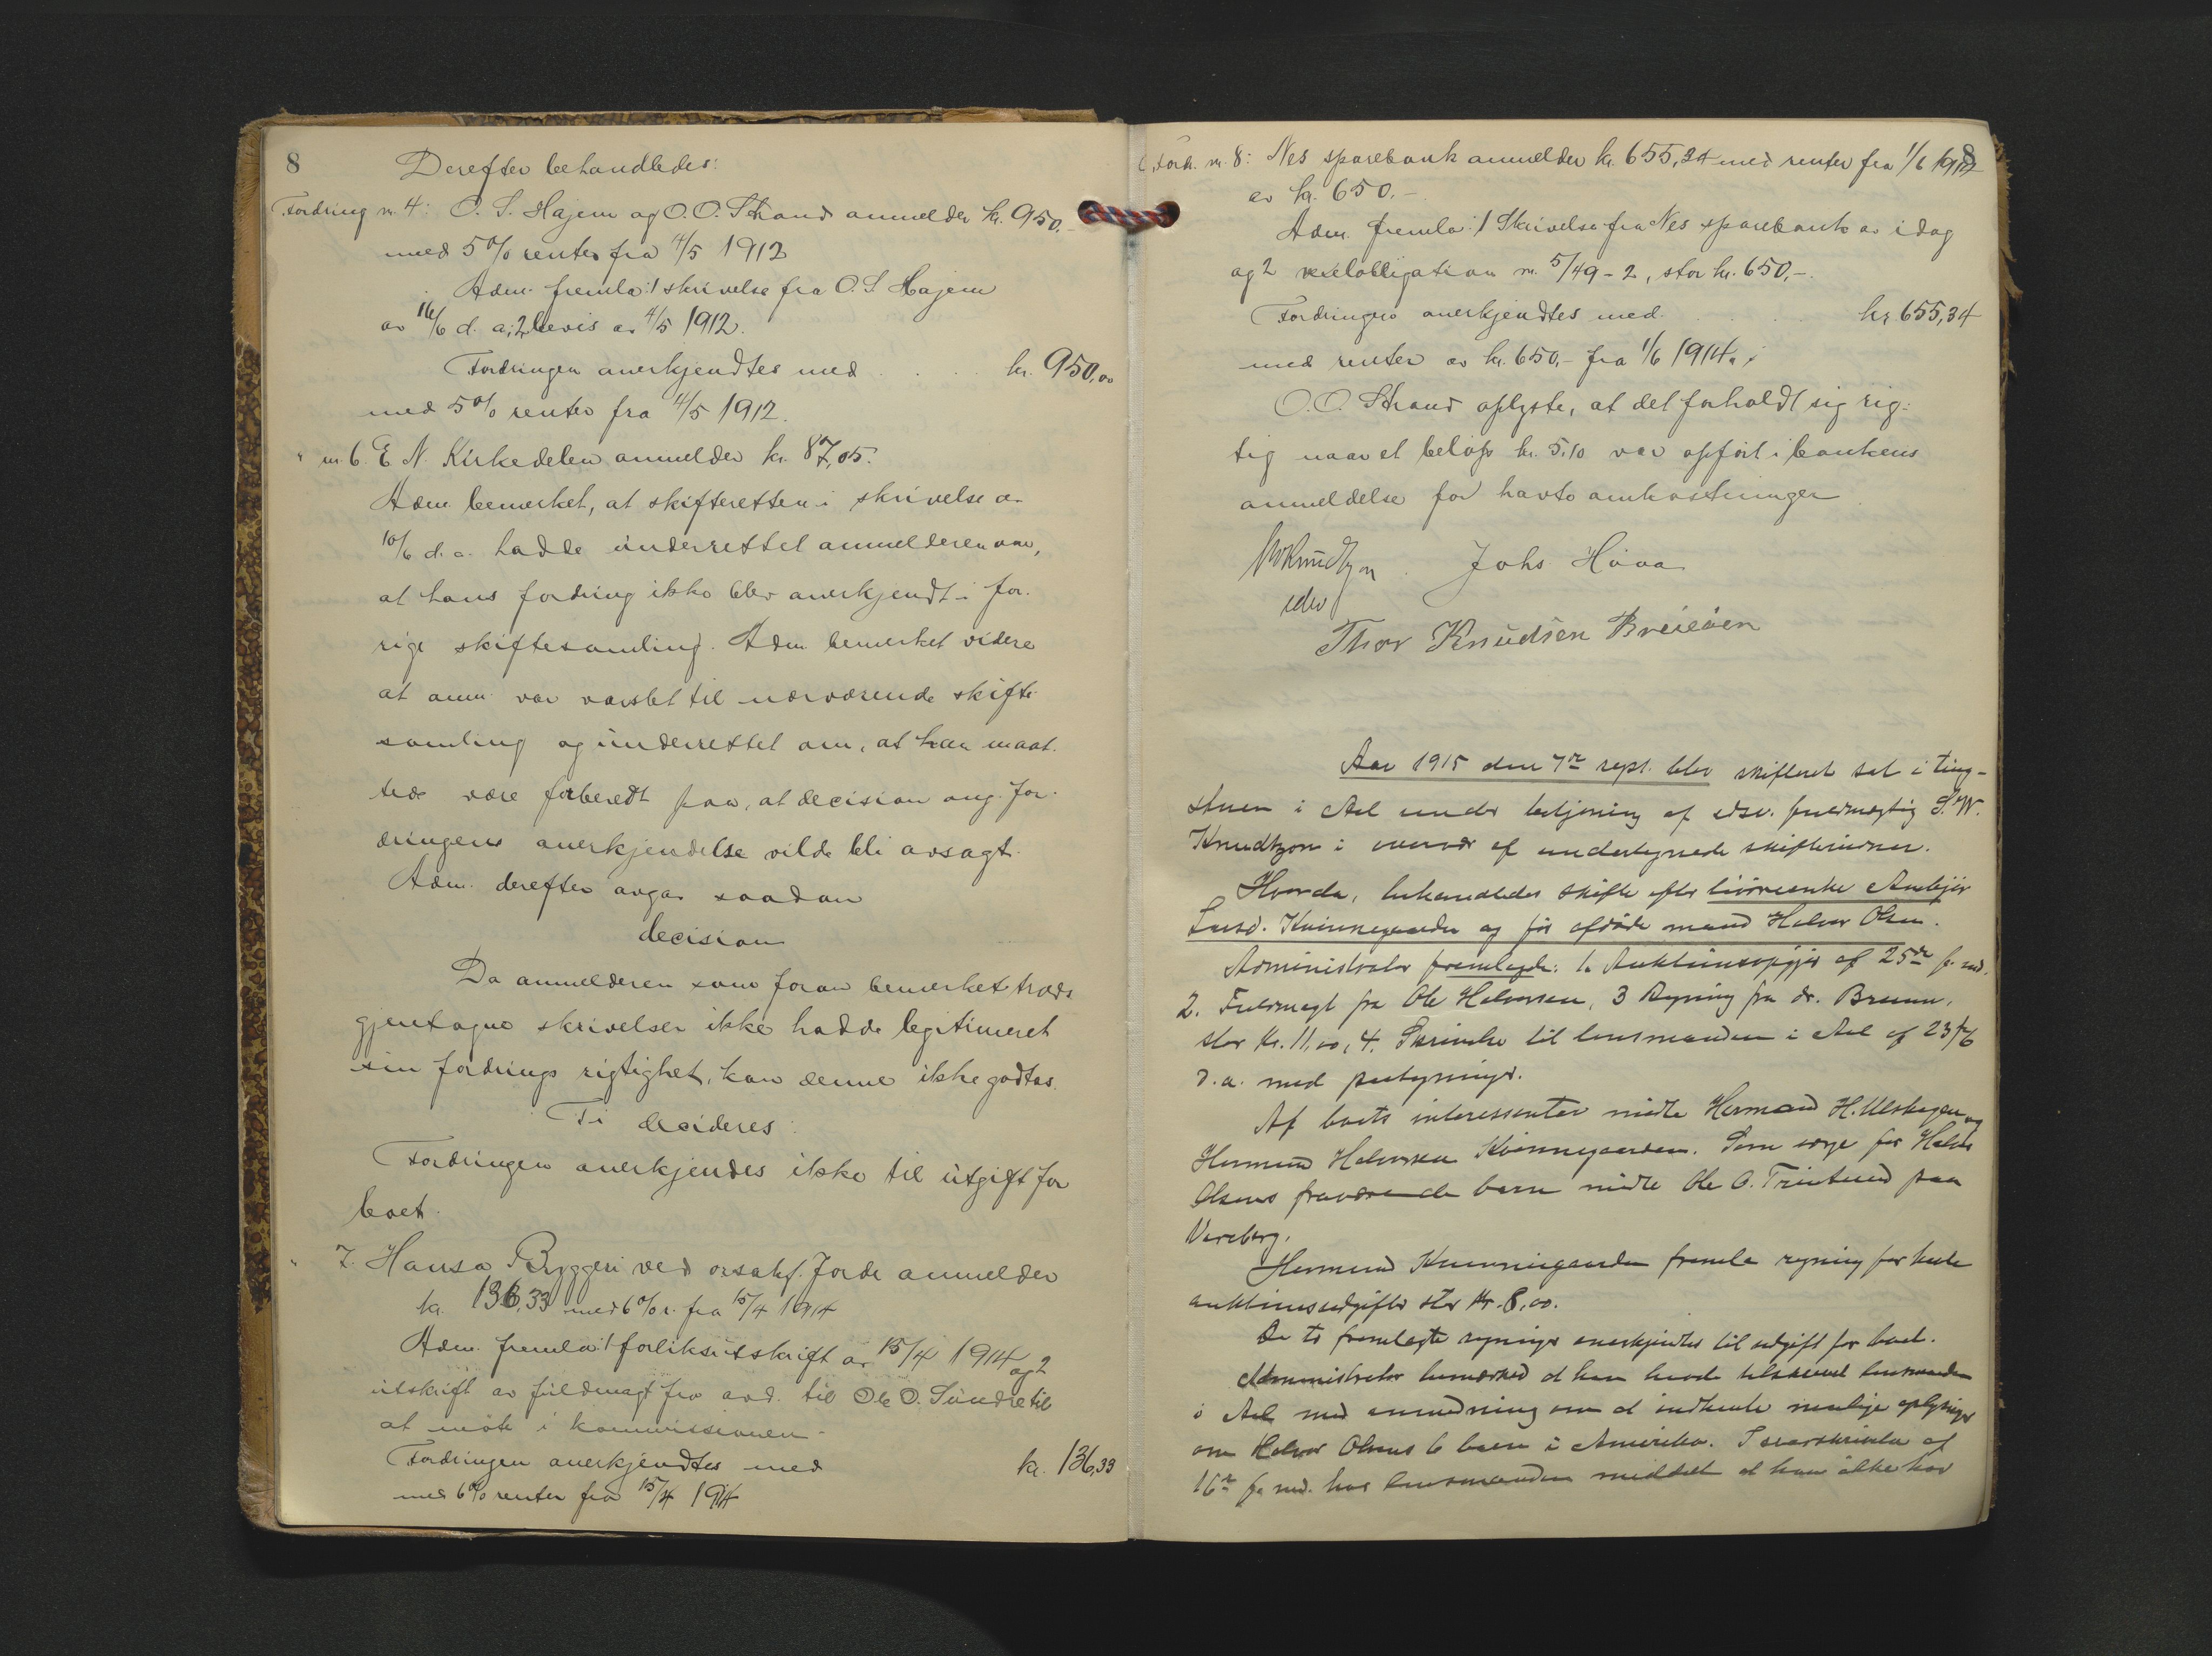 8
Derefter behandledes:
Fordring nr. 4: O. S. Hajem og O. O. Strand anmelder kr. 950.-
med 5% renter fra 4/5 1912
Adm. fremla: 1 skrivelse fra O. S. Hajem
av 16/6 d. a; 2, bevis av 4/5 1912.
Fordringen anerkjendtes med . . . kr. 950,00
med 5% renter fra 4/5 1912.
" nr. 6. E. N. Kirkedelen anmelder kr. 87,05.
Adm. bemerket, at skifteretten i skrivelse av
10/6 d. a. hadde underrettet anmelderen om,
at hans fordring ikke blev anerkjendt i for-
rige skiftesamling. Adm. bemerket videre
at anm. var varslet til nærværende skifte
samling og underrettet om, at han maat-
te være forberedt paa, at decision ang. for-
dringens anerkjendelse vilde bli avsagt.
Adm. derefter avga saadan
decision
Da anmelderen som foran bemerket trods
gjentagne skrivelser ikke hadde legitimeret
sin fordrings rigtighet, kan denne ikke godtas.
Ti decideres:
Fordringen anerkjendes ikke til utgift for
boet.
" 7. Hansa Bryggeri ved orsakf. Jorde anmelder
kr. 136,33 med 6% r. fra 15/4 1914
Adm. fremla: 1 forliksutskrift av 15/4 1914 og 2
utskrift av fuldmagt fra avd. til Ole O. Sundre til
at møte i kommissionen.
Fordringen anerkjendtes med kr. 136,33
med 6% renter fra 15/4 1914
Ford. nr. 8: Nes sparebank anmelder kr. 655,34 med renter fra 1/6 1914
av kr. 650.-
Adm. fremla: 1 Skrivelse fra Nes sparebank av idag
og 2 vexelobligation nr. 5/49-2, stor kr. 650,-.
Fordringen anerkjendtes med . . . kr 655,34
med renter av kr. 650,- fra 1/6 1914.
O. O. Strand oplyste, at det forholdt sig rig-
tig naar et beløp kr. 5,10 var opført i bankens
anmeldelse for havte omkostninger.
Knudtzon Johs Haaa
edsv
Thor Knudsen Breieöen
Aar 1915 den 7de sept. blev skifteret sat i ting-
stuen i Aal under betjening af edsv. fuldmægtig S. W.
Knudtzon i overvær af undertegnede skiftevidner.
Hvorda, behandledes skifte efter livøreenke Ambjør
Larsd. Kvinnegarden og før afdøde mand Halvor Olsen.
Administrator fremlagde: 1. Auktionsopgjør af 25de f. md.
2. Fuldmagt fra Ole Halvorsen, 3 Regning fra dr. Bruun,
stor kr. 11,00, 4. Skrivelse til lensmanden i Aal af 23/6
d. a. med paategninger.
Af boets interessenter mødte Hermand H. Ulshagen og
Hermund Halvorsen Kvinnegaarden. Som verge for Halvor
Olsens fraværende barn mødte Ole O. Trintrud paa
Vareberg.
Hermund Kvinnegaarden fremla regning for hele
auktionsudgifter stor kr. 8,00.
De to fremlagte regninger anerkjendtes til udgift for boet.
Administrator bemærked at han havde tilskrevet lensmanden
i Aal med anmodning om at indhente nærlige oplysninger
om Halvor Olsens 6 barn i Amerika. I svarskrivelse af
16de f. md. har lensmanden meddelt at han ikke har